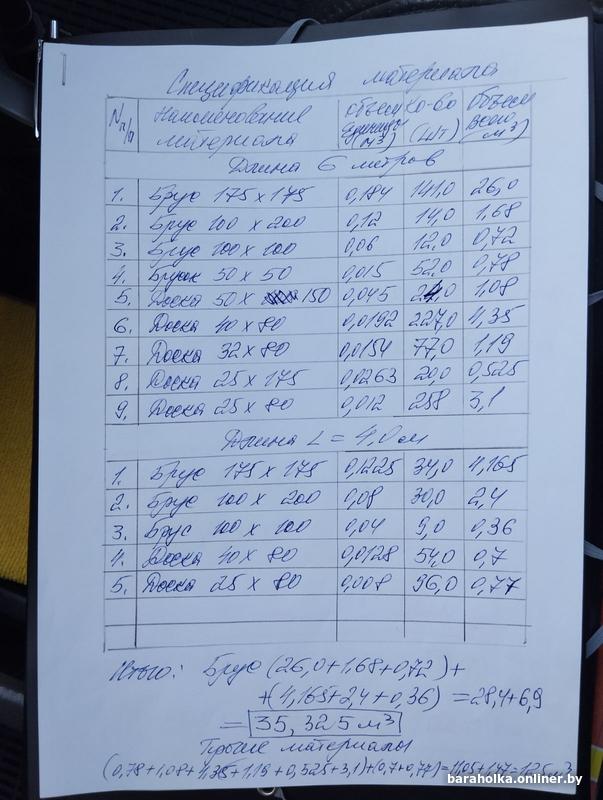 Спецификация материала
N п/п Наименование материала Объем единицы (м³) Кол-во (шт) Объем всего (м³)
Длина 6 метров
1. Брус 175 х 175 0,184 141,0 26,0
2. Брус 100 х 200 0,12 14,0 1,68
3. Брус 100 х 100 0,06 12,0 0,72
4. Брусок 50 х 50 0,015 52,0 0,78
5. Доска 50 х 150 0,045 24,0 1,08
6. Доска 40 х 80 0,0192 227,0 4,35
7. Доска 32 х 80 0,0154 77,0 1,19
8. Доска 25 х 175 0,0263 20,0 0,525
9. Доска 25 х 80 0,012 258 3,1
Длина L = 4,0 м
1. Брус 175 х 175 0,1225 34,0 4,165
2. Брус 100 х 200 0,08 30,0 2,4
3. Брус 100 х 100 0,04 9,0 0,36
4. Доска 40 х 80 0,0128 54,0 0,7
5. Доска 25 х 80 0,008 96,0 0,77
Итого: Брус (26,0+1,68+0,72)+
+(4,165+2,4+0,36) = 28,4+6,9
= 35,325 м³
Прочие материалы
(0,78+1,08+4,35+1,19+0,525+3,1)+(0,7+0,77)=11,05+1,47=12,5 м3
baraholka.onliner.by